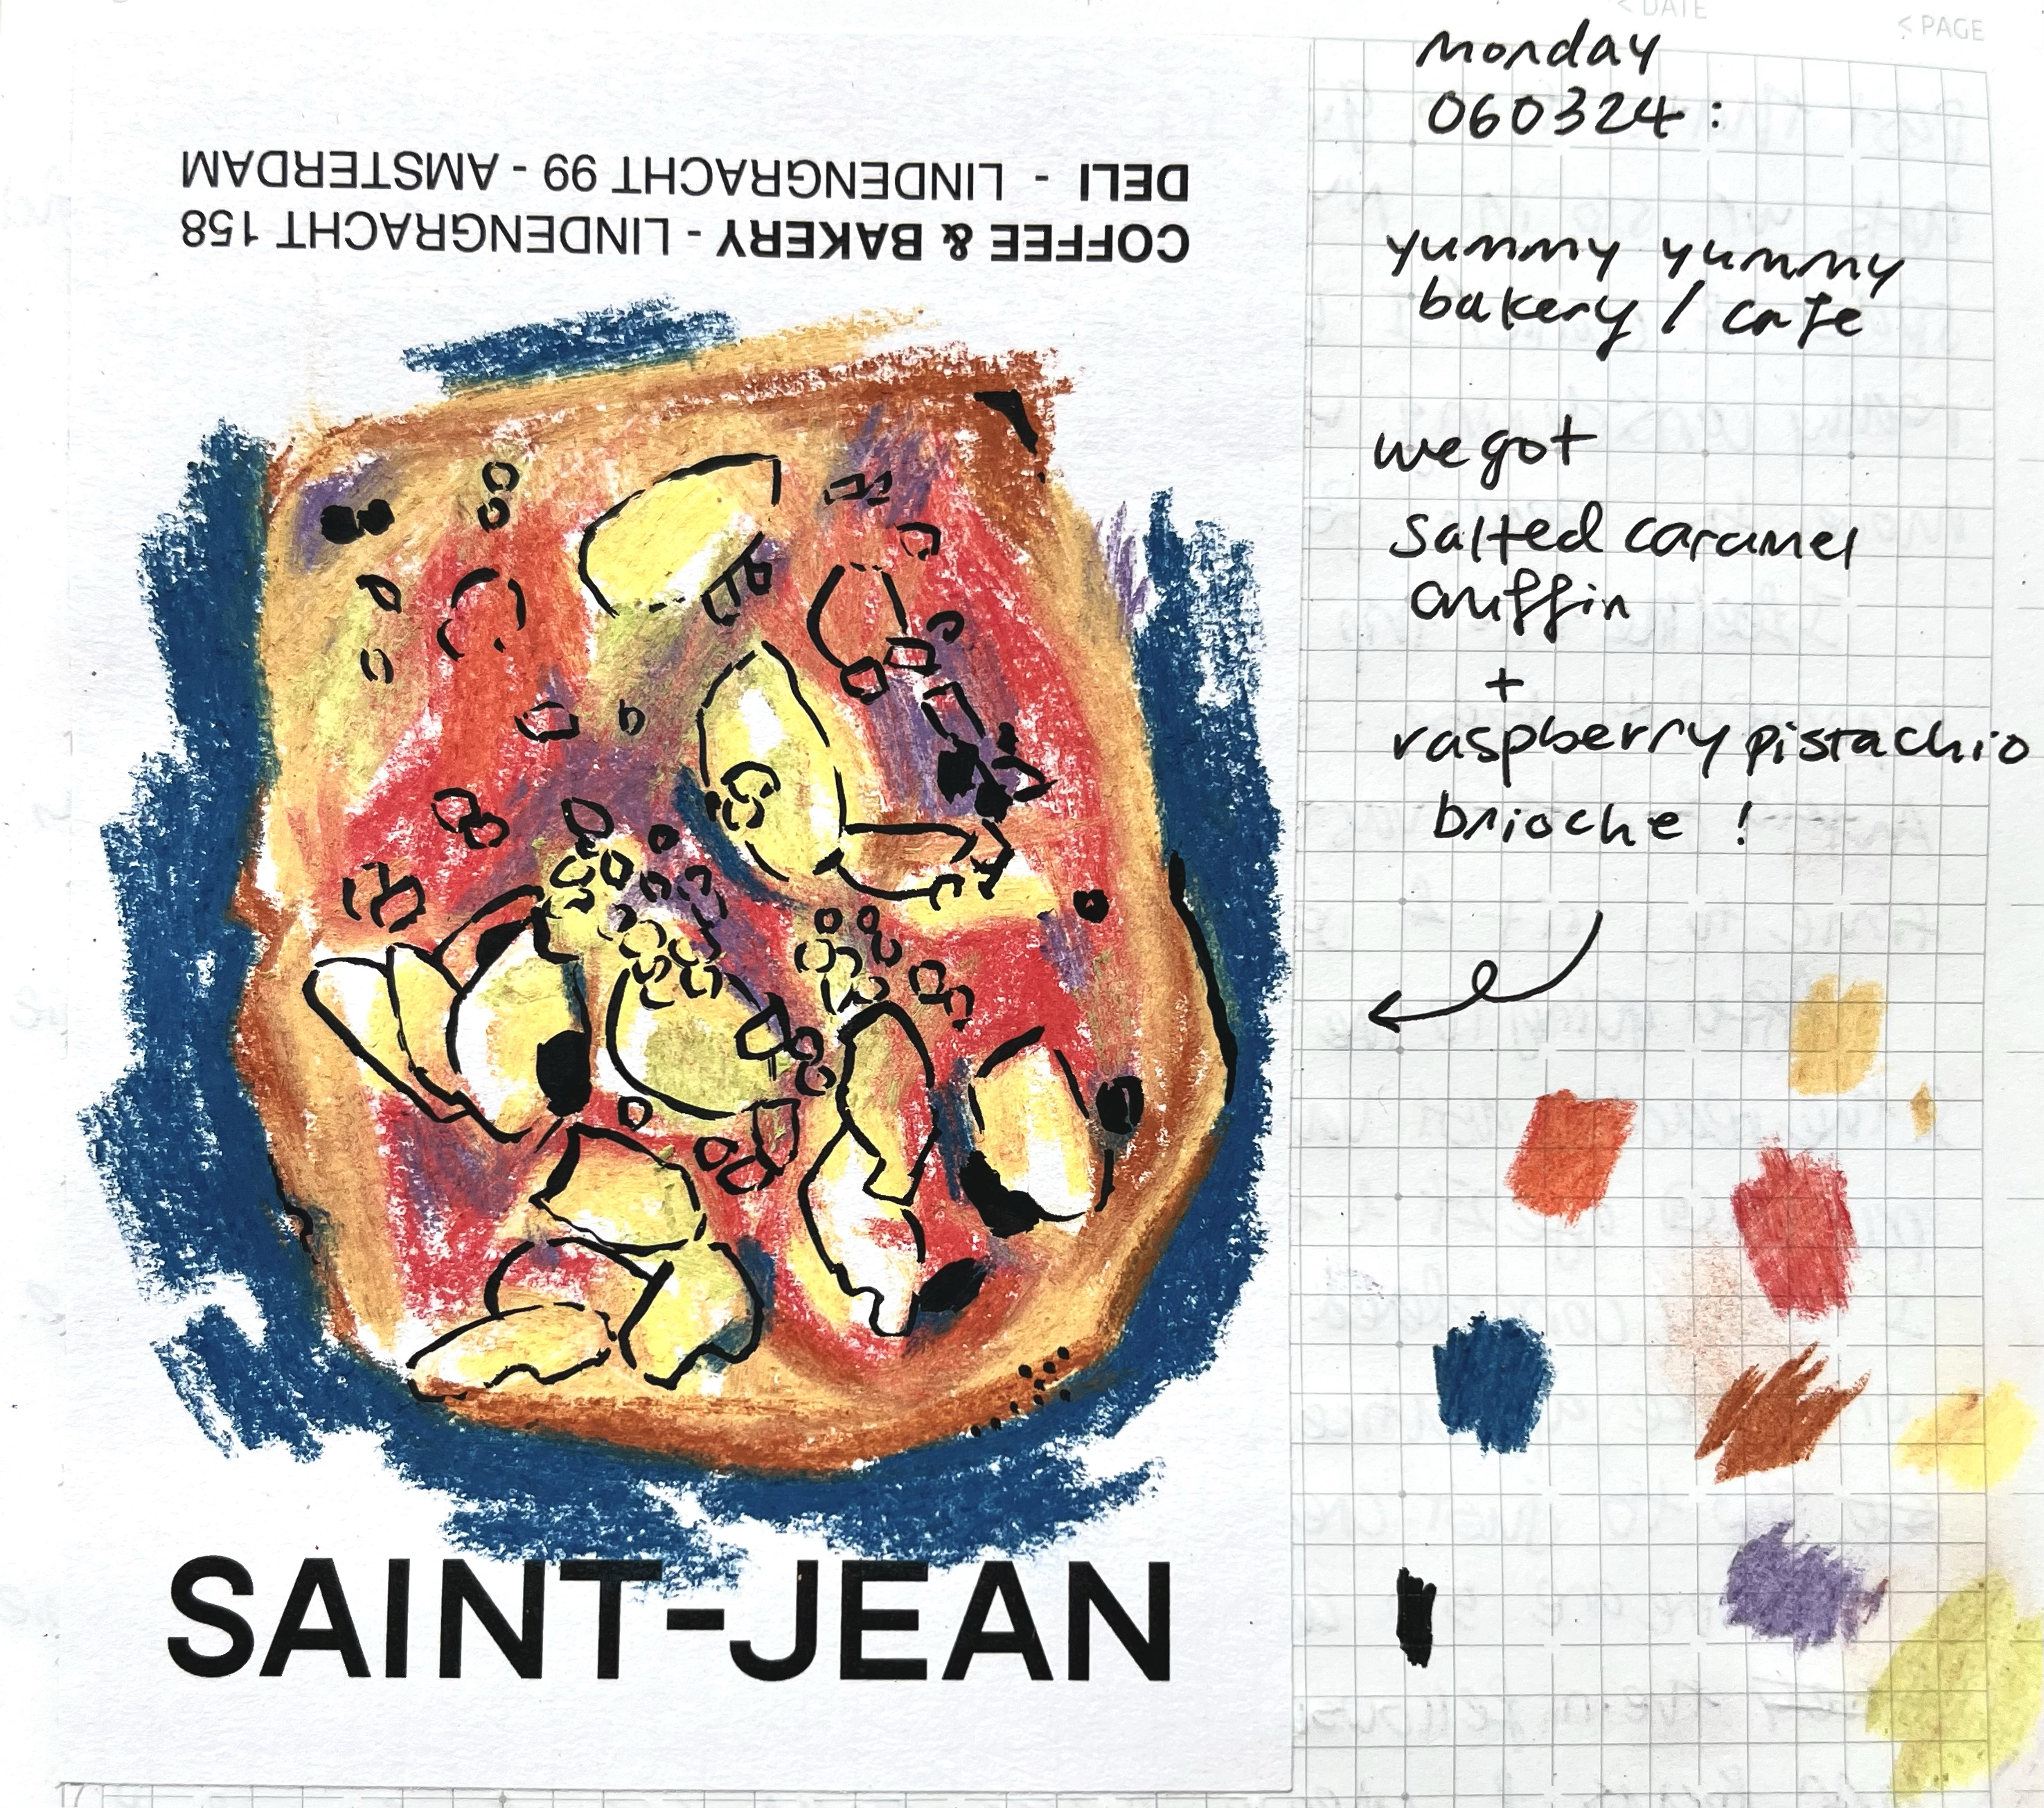 < DATE
< PAGE
monday
060324:
yummy yummy
bakery / cafe
we got
salted caramel
cruffin
+
raspberry pistachio
brioche !
COFFEE & BAKERY - LINDENGRACHT 158
DELI - LINDENGRACHT 99 - AMSTERDAM
SAINT-JEAN
17